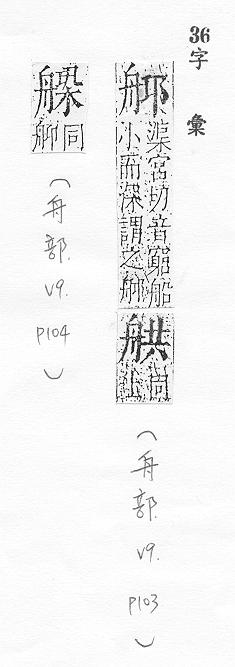 36
字彙
渠宮切音窮船
小而深謂之
舼
同
上
(舟部. V9. P103)
同
(舟部. V9. P104)